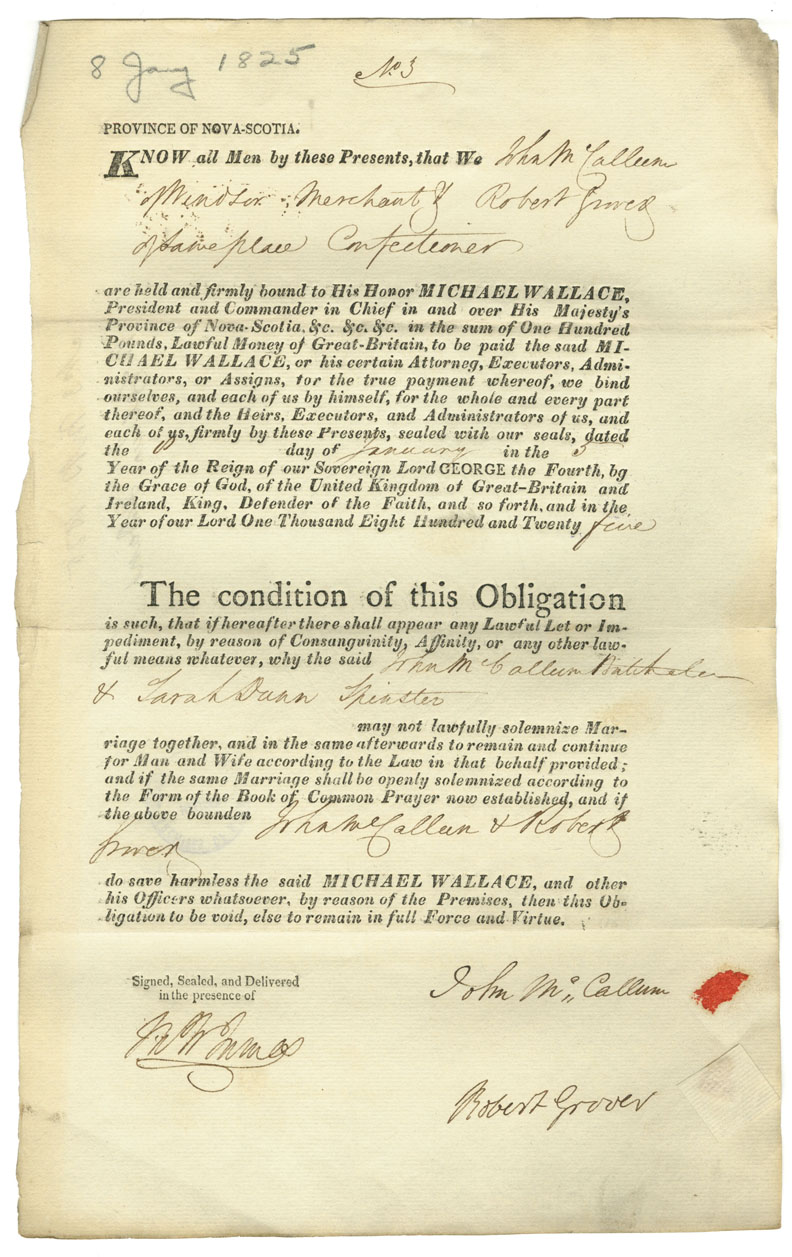 8 Jany 1825
No 3
PROVINCE OF NOVA-SCOTIA.
KNOW all Men by these Presents, that We John McCallum
of Windsor Merchant & Robert Grover
of same place Confectioner
are held and firmly bound to His Honor MICHAEL WALLACE,
President and Commander in Chief in and over His Majesty's
Province of Nova-Scotia, &c. &c. &c. in the sum of One Hundred
Pounds, Lawful Money of Great-Britain, to be paid the said MI-
CHAEL WALLACE, or his certain Attorney, Executors, Admi-
nistrators, or Assigns, for the true payment whereof, we bind
ourselves, and each of us by himself, for the whole and every part
thereof, and the Heirs, Executors, and Administrators of us, and
each of us, firmly by these Presents, sealed with our seals, dated
the day of January in the 5
Year of the Reign of our Sovereign Lord GEORGE the Fourth, by
the Grace of God, of the United Kingdom of Great-Britain and
Ireland, King, Defender of the Faith, and so forth, and in the
Year of our Lord One Thousand Eight Hundred and Twenty five
The condition of this Obligation
is such, that if hereafter there shall appear any Lawful Let or Im-
pediment, by reason of Consanguinity, Affinity, or any other law-
ful means whatever, why the said John McCallum Batchelor
& Sarah Dunn Spinster
may not lawfully solemnize Mar-
riage together, and in the same afterwards to remain and continue
for Man and Wife according to the Law in that behalf provided;
and if the same Marriage shall be openly solemnized according to
the Form of the Book of Common Prayer now established, and if
the above bounden John McCallum & Robert
Grover
do save harmless the said MICHAEL WALLACE, and other
his Officers whatsoever, by reason of the Premises, then this Ob-
ligation to be void, else to remain in full Force and Virtue.
Signed, Sealed, and Delivered
in the presence of
John Mc Callum
Robert Grover